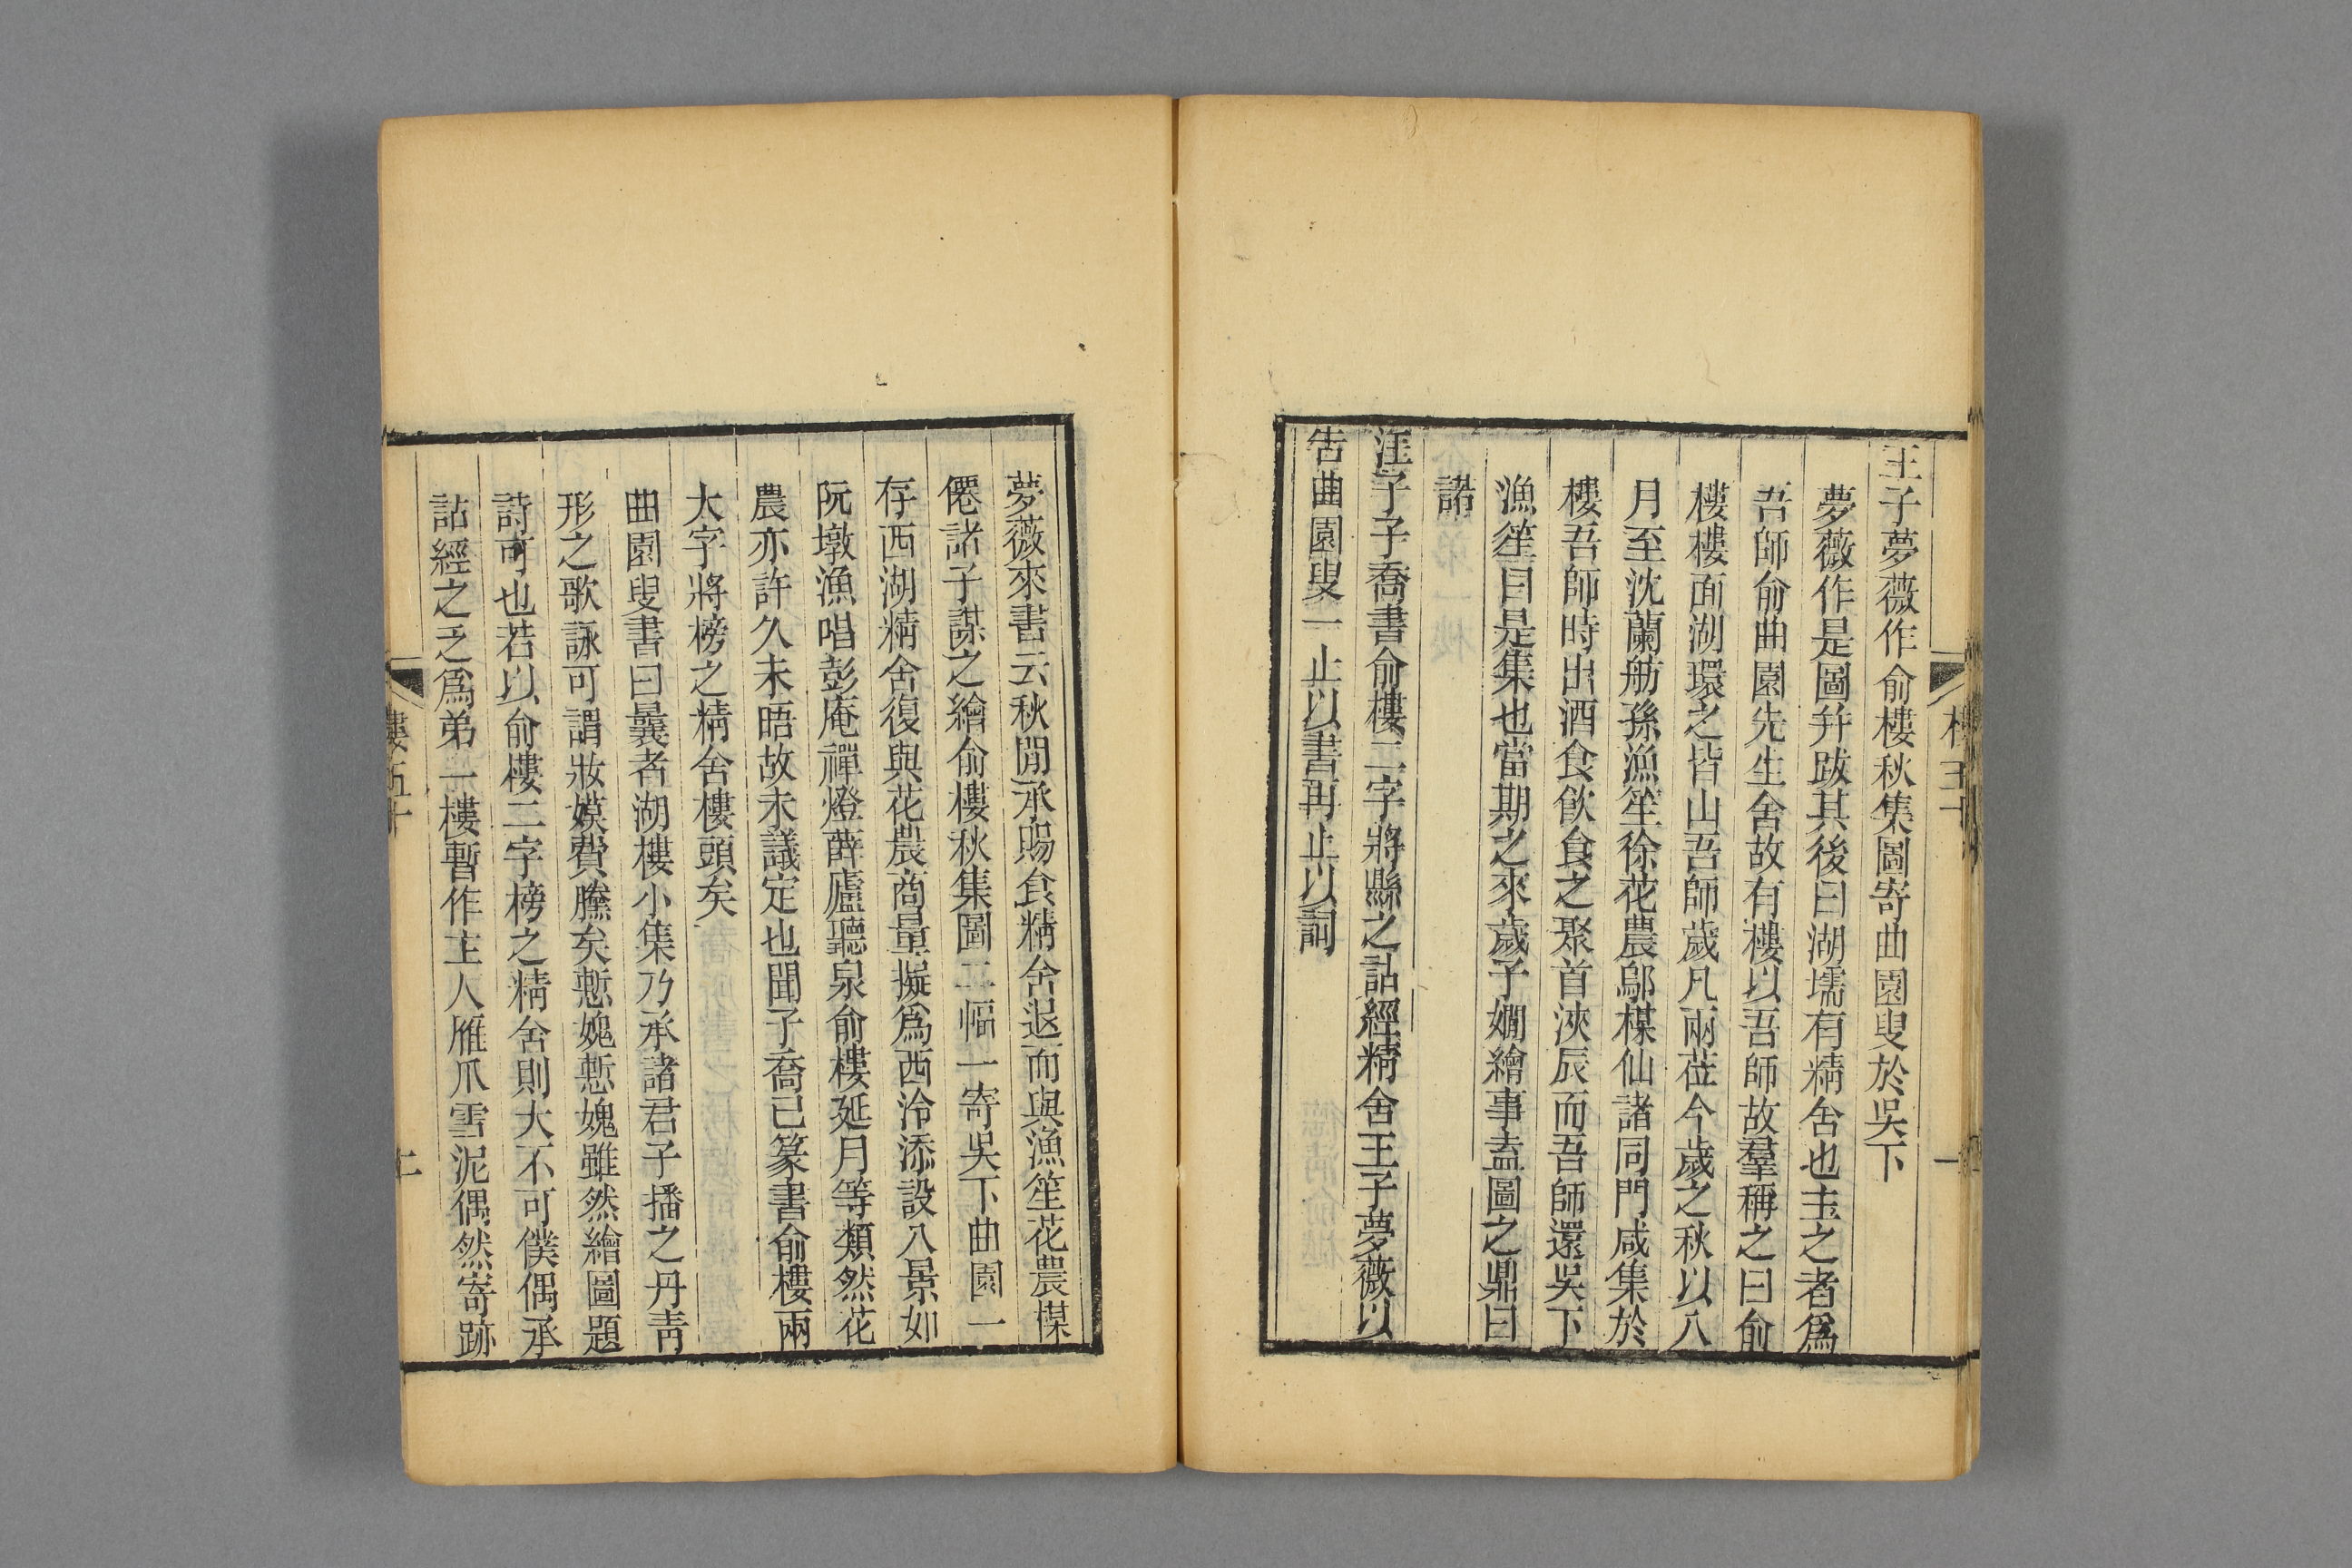 王子夢薇作俞樓秋集圖寄曲園叟於吳下
夢薇作是圖幷跋其後曰湖壖有精舍也主之者爲
吾師俞曲園先生舍故有樓以吾師故羣稱之曰俞
樓樓面湖環之皆山吾師歲凡兩莅今歲之秋以八
月至沈蘭舫孫漁笙徐花農鄔楳仙諸同門咸集於
樓吾師時出酒食飲食之聚首浹辰而吾師還吳下
漁笙曰是集也當期之來歲子嫺繪事盍圖之鼎曰
諾
汪子子喬書俞樓二字將縣之詁經精舍王子夢薇以
告曲園叟一止以書再止以詞
夢薇來書云秋閒承賜食精舍退而與漁笙花農楳
僊諸子謀之繪俞樓秋集圖二幅一寄吳下曲園一
存西湖精舍復與花農商量擬爲西泠添設八景如
阮墩漁唱彭庵禪燈薛廬聽泉俞樓延月等類然花
農亦許久未晤故未議定也聞子喬已篆書俞樓兩
大字將榜之精舍樓頭矣
曲園叟書曰曩者湖樓小集乃承諸君子播之丹青
形之歌詠可謂妝嫫費黱矣慙媿慙媿雖然繪圖題
詩可也若以俞樓二字榜之精舍則大不可僕偶承
詁經之乏爲弟一樓暫作主人雁爪雪泥偶然寄跡
樓五十